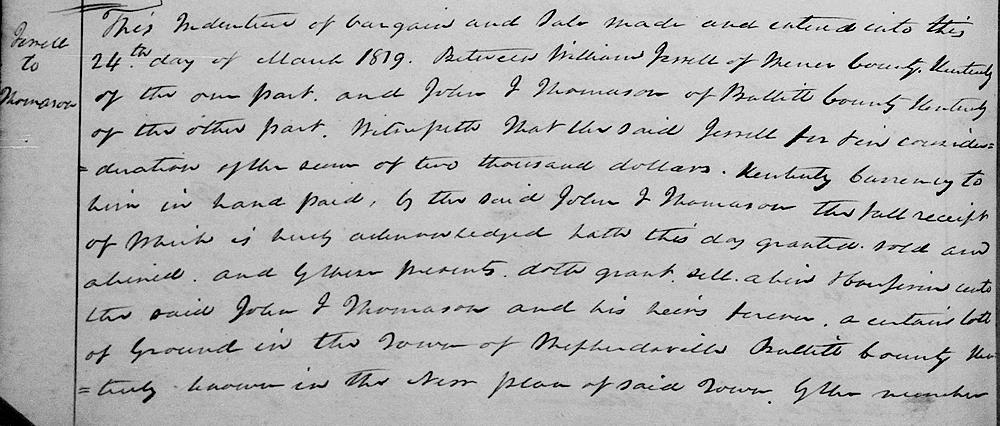 Jerrell
to
Thomason
This Indenture of bargain and Sale made and entered into this
24th day of March 1819. Between William Jerrell of Mercer County, Kentucky
of the one part. and John J Thomason of Bullitt County Kentucky
of the other part. Witnesseth That the said Jerrell for & in consider=
=deration of the sum of two thousand dollars. Kentucky Currency to
him in hand paid, by the said John J Thomason the full receipt
of Which is herby acknowledged hath this day granted. sold and
aliened. and by these presents. doth grant. sell. alien & confirm unto
the said John J Thomason and his heirs forever. a certain lott
of Ground in the Town of Shepherdsville Bullitt County Ken=
=tucky known in the New plan of said Town. by the number